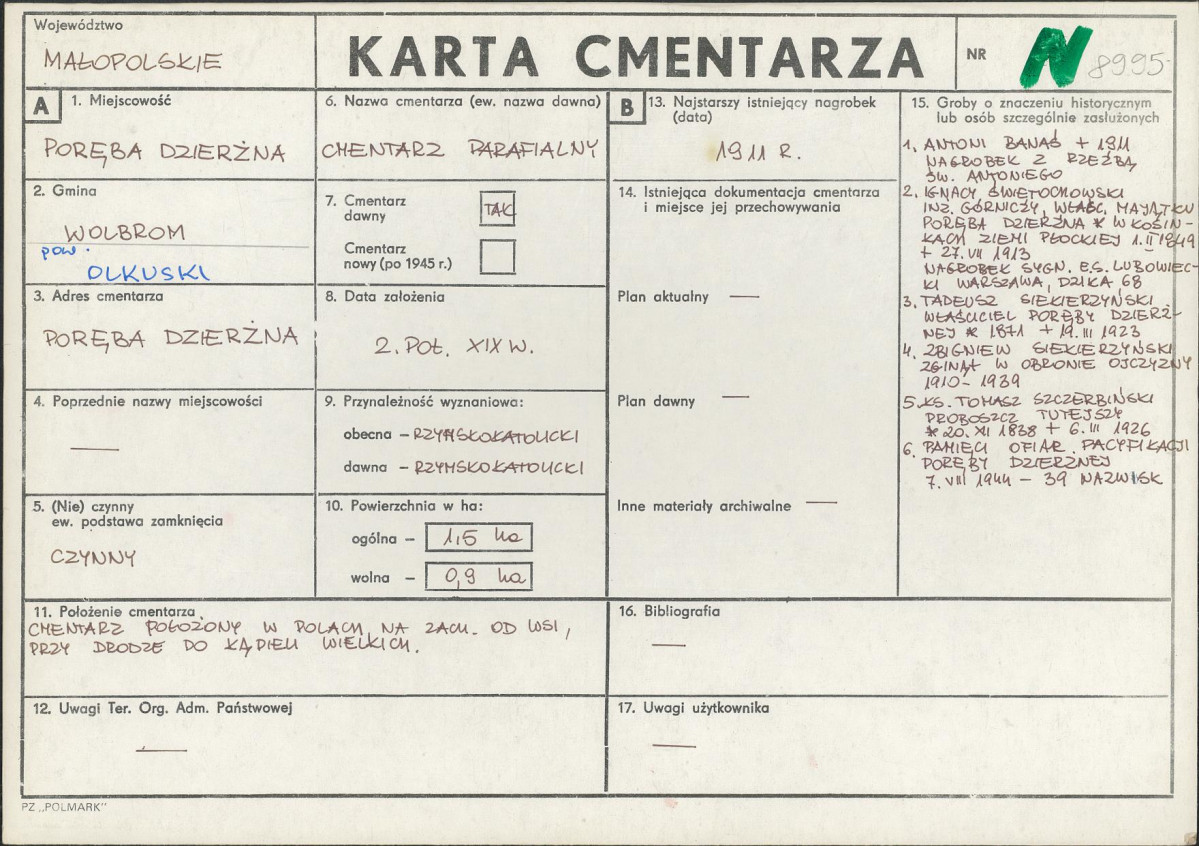 Województwo
MAŁOPOLSKIE
KARTA CMENTARZA
NR
N 8995
A
1. Miejscowość
PORĘBA DZIERŻNA
2. Gmina
WOLBROM
pow.
OLKUSKI
3. Adres cmentarza
PORĘBA DZIERŻNA
4. Poprzednie nazwy miejscowości
—
5. (Nie) czynny
ew. podstawa zamknięcia
CZYNNY
6. Nazwa cmentarza (ew. nazwa dawna)
CMENTARZ PARAFIALNY
7. Cmentarz
dawny
TAK
Cmentarz
nowy (po 1945 r.)
8. Data założenia
2. POŁ. XIX W.
9. Przynależność wyznaniowa:
obecna – RZYMSKOKATOLICKI
dawna – RZYMSKOKATOLICKI
10. Powierzchnia w ha:
ogólna – 1,5 ha
wolna – 0,9 ha
11. Położenie cmentarza
CMENTARZ POŁOŻONY W POLACH, NA ZACH. OD WSI,
PRZY DRODZE DO KĄPIELI WIELKICH.
12. Uwagi Ter. Org. Adm. Państwowej
—
B
13. Najstarszy istniejący nagrobek
(data)
1911 R.
14. Istniejąca dokumentacja cmentarza
i miejsce jej przechowywania
Plan aktualny —
Plan dawny —
Inne materiały archiwalne —
15. Groby o znaczeniu historycznym
lub osób szczególnie zasłużonych
1. ANTONI BANAŚ + 1911
NAGROBEK Z RZEŹBĄ
ŚW. ANTONIEGO
2. IGNACY ŚWIĘTOCHOWSKI
INŻ. GÓRNICZY, WŁAŚC. MAJĄTKU
PORĘBA DZIERŻNA * W KOSIN-
KACH ZIEMI PŁOCKIEJ 1.II 1849
+ 27.VII 1913
NAGROBEK SYGN. E.S. LUBOWIEC-
KI WARSZAWA, DZIKA 68
3. TADEUSZ SIEKIERZYŃSKI
WŁAŚCICIEL PORĘBY DZIERŻ-
NEJ * 1871 + 19.III 1923
4. ZBIGNIEW SIEKIERZYŃSKI
ZGINĄŁ W OBRONIE OJCZYZNY
1910 – 1939
5. KS. TOMASZ SZCZERBIŃSKI
PROBOSZCZ TUTEJSZY
* 20. XI 1838 + 6.III 1926
6. PAMIĘCI OFIAR PACYFIKACJI
PORĘBY DZIERŻNEJ
7. VIII 1944 – 39 NAZWISK
16. Bibliografia
—
17. Uwagi użytkownika
—
PZ „POLMARK"